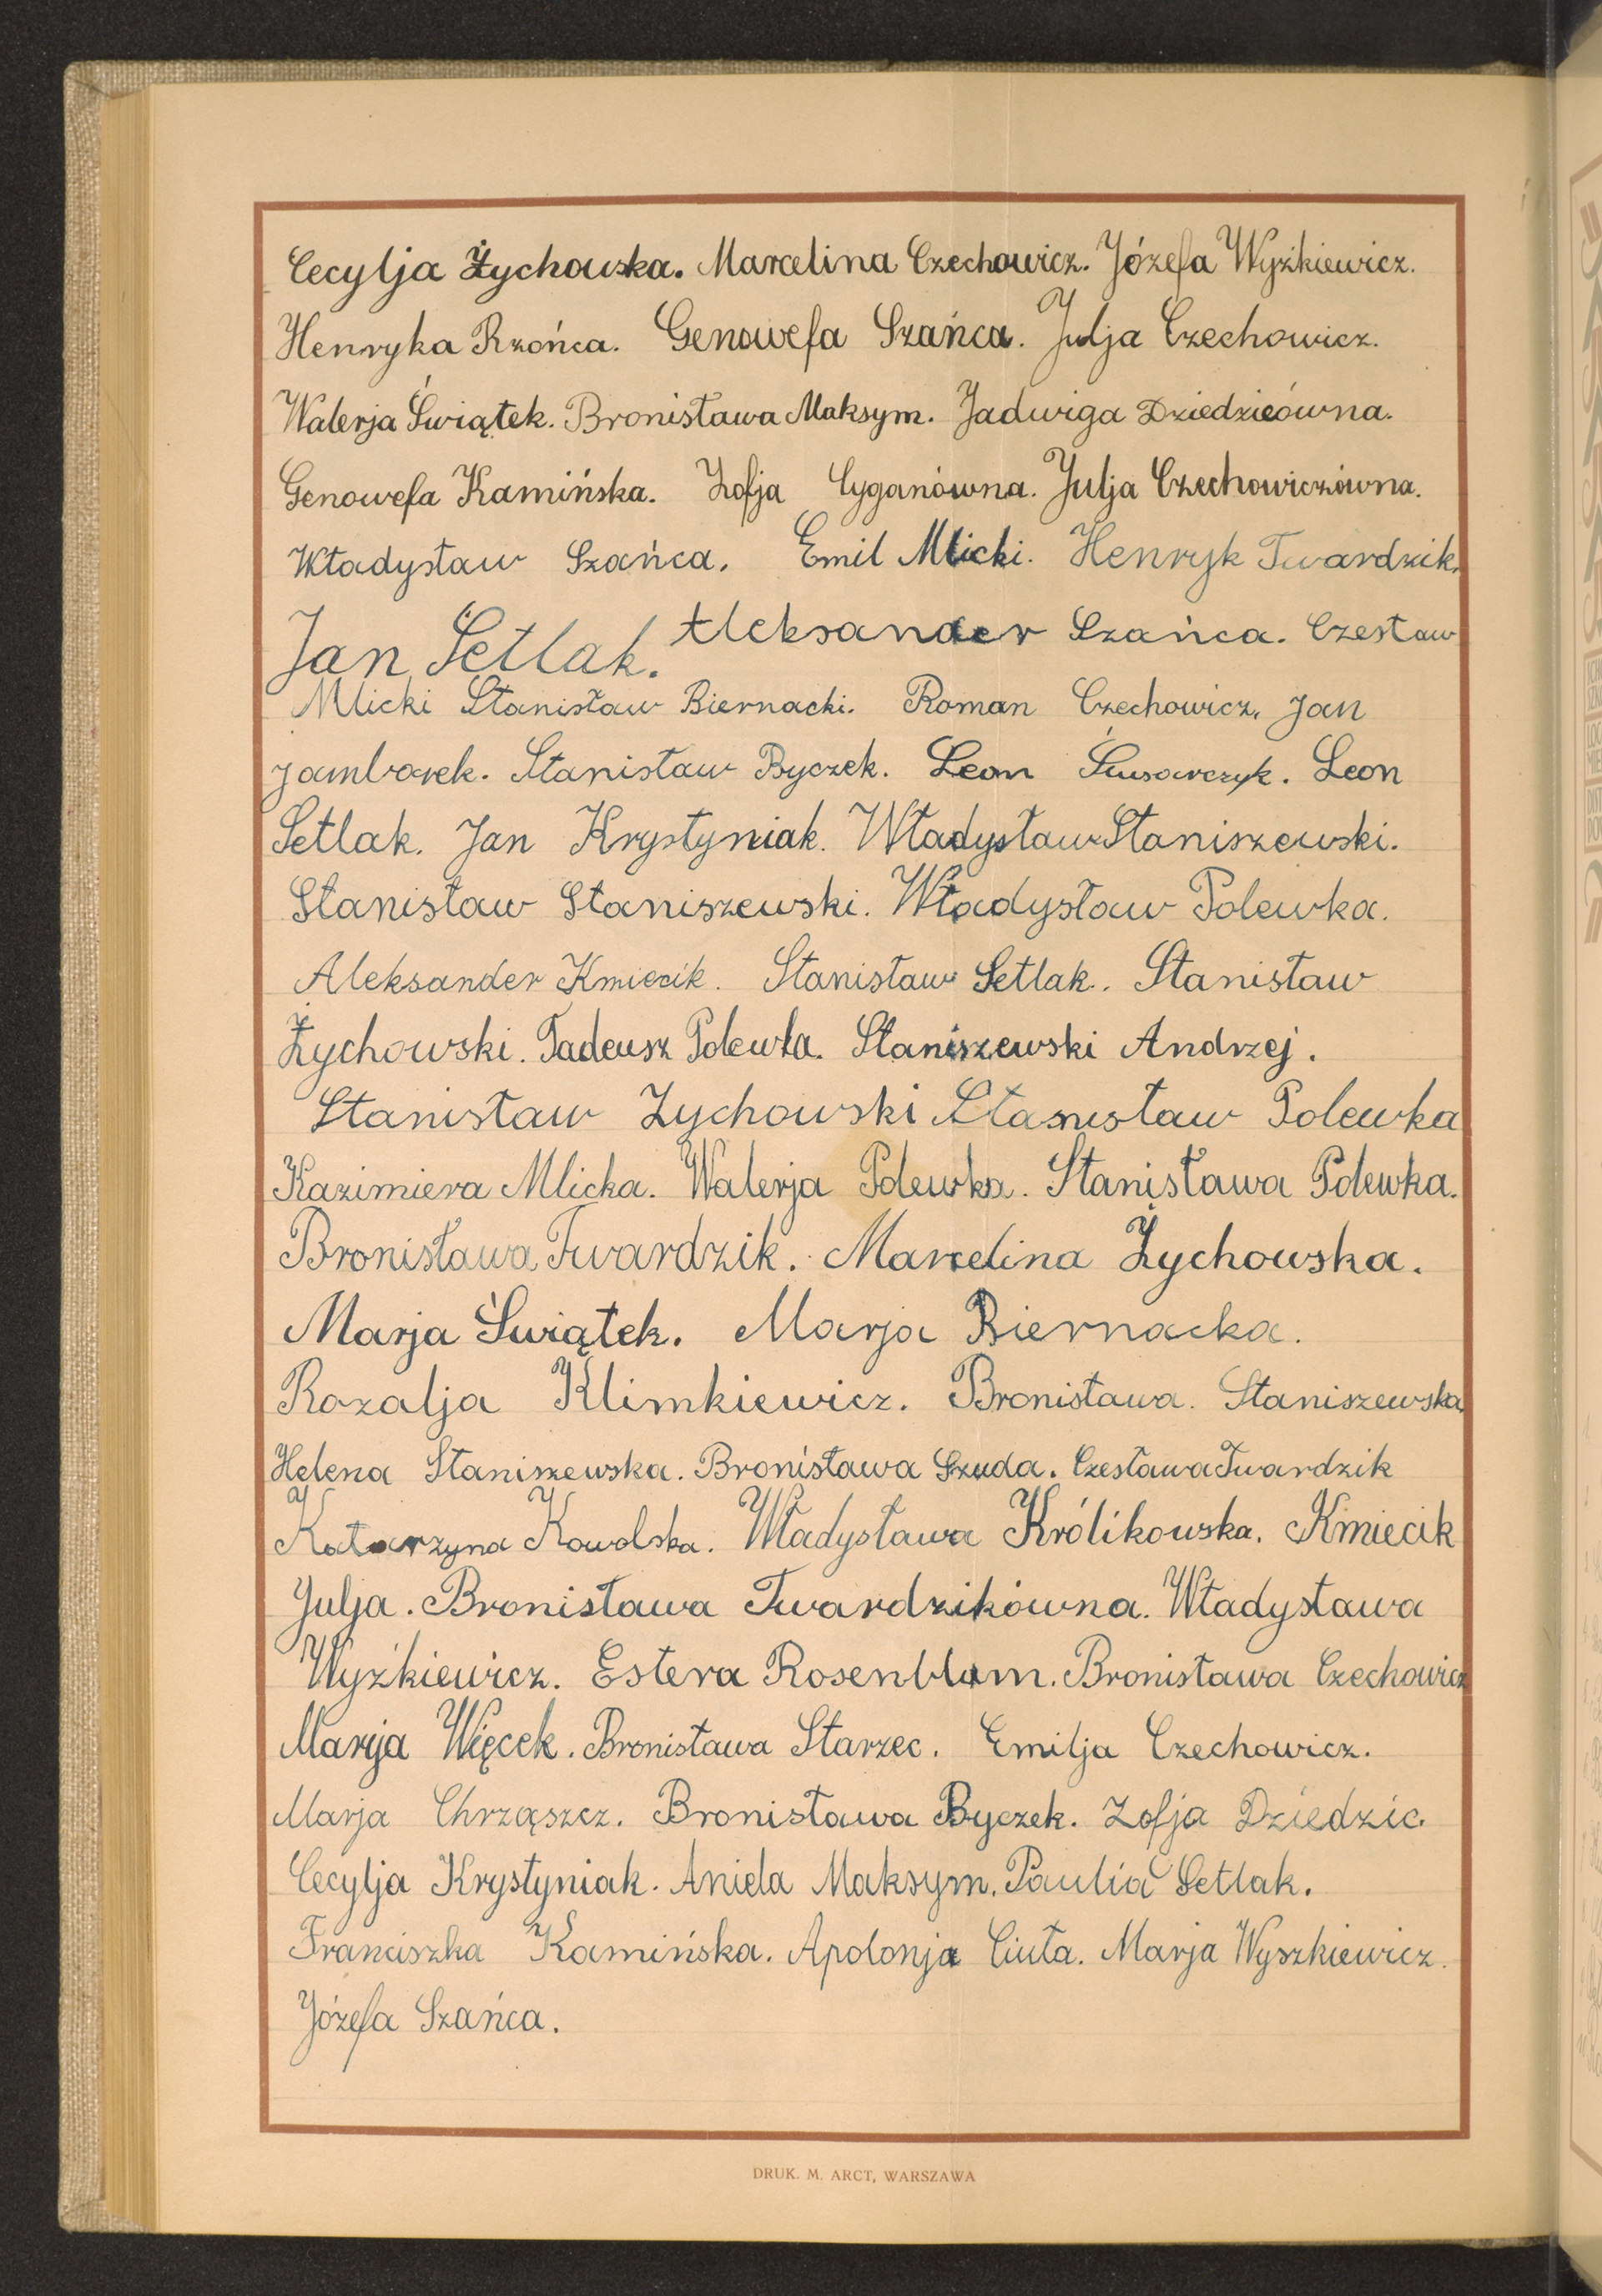 Cecylja Żychowska. Marcelina Czechowicz. Józefa Wyżkiewicz.
Henryka Rzońca. Genowefa Szańca. Julja Czechowicz.
Walerja Świątek. Bronisława Maksym. Jadwiga Dziedzicówna.
Genowefa Kamińska. Zofja Cyganówna. Julja Czechowiczówna.
Władysław Szańca. Emil Mlicki. Henryk Twardzik.
Jan Setlak. Aleksander Szańca. Czesław
Mlicki Stanisław Biernacki. Roman Czechowicz. Jan
Jamborek. Stanisław Byczek. Leon Ślusarczyk. Leon
Setlak. Jan Krystyniak. Władysław Staniszewski.
Stanisław Staniszewski. Władysław Polewka.
Aleksander Kmiecik. Stanisław Setlak. Stanisław
Żychowski. Tadeusz Polewka. Staniszewski Andrzej.
Stanisław Zychowski Stanisław Polewka
Kazimiera Mlicka. Walerja Polewka. Stanisława Polewka.
Bronisława Twardzik. Marcelina Żychowska.
Marja Świątek. Marja Biernacka.
Rozalja Klimkiewicz. Bronisława. Staniszewska.
Helena Staniszewska. Bronisława Szuda. Czesława Twardzik
Katarzyna Kowalska. Władysława Królikowska. Kmiecik
Julja. Bronisława Twardzikówna. Władysława
Wyżkiewicz. Estera Rosenblum. Bronisława Czechowicz
Marja Więcek. Bronisława Starzec. Emilja Czechowicz.
Marja Chrząszcz. Bronisława Byczek. Zofja Dziedzic.
Cecylja Krystyniak. Aniela Maksym. Paulia Setlak.
Franciszka Kamińska. Apolonja Ciuła. Marja Wyszkiewicz.
Józefa Szańca.
DRUK. M. ARCT, WARSZAWA